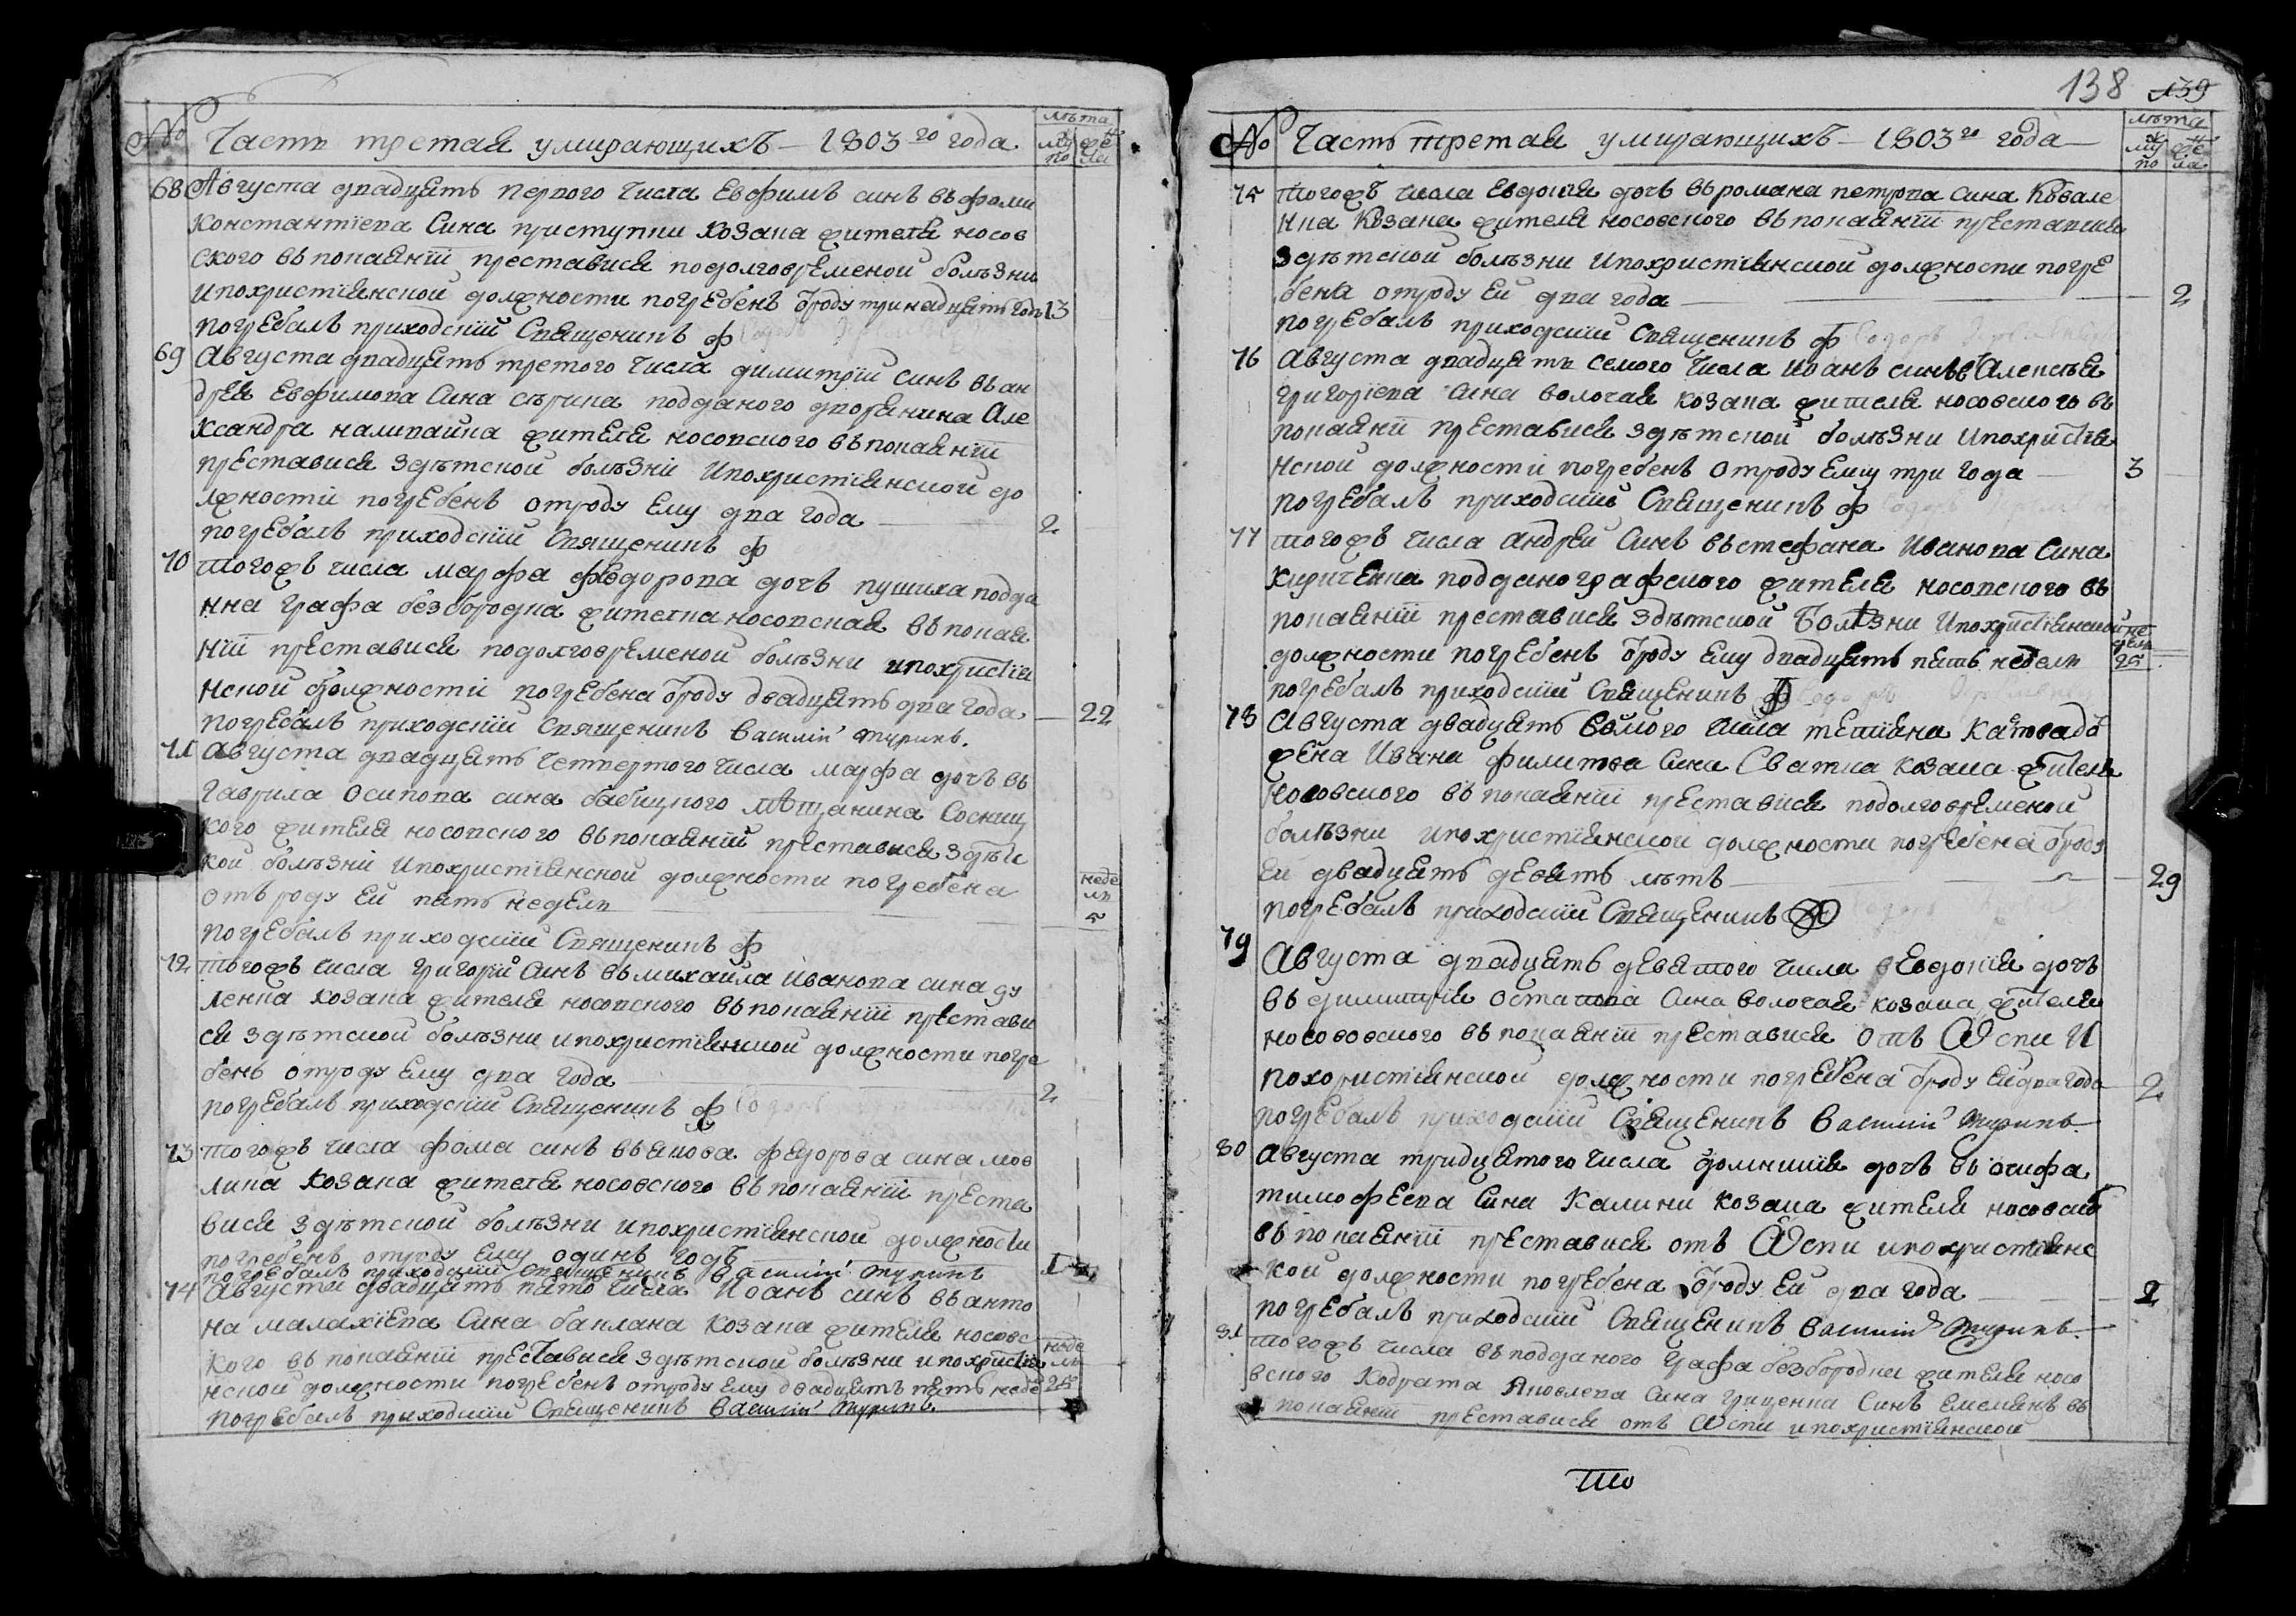 № Часть третая умирающихъ – 1803го года
лѣта
му же
по ла
68 Августа двадцять первого числа Евфимъ синъ въ фоми
Константіева сина приступи козака жителя носов
ского въ покаяніи преставися подолговременой болѣзни
ипохристіянской должности погребенъ ѿроду тринадцять годъ 13
погребалъ приходскій священикъ ф
69 Августа двадцять третого числа димитрій синъ въ ан
дрея Евфимова сина подданого дворянина але
ксандра жителя носовского въ покаяніи
преставися здѣтской болѣзни ипохристіянской до
лжности погребенъ отроду ему два года 2
погребалъ приходскій священикъ ф
70 тогожъ числа марфа федорова дочъ подда
нна графа безбородка жителка носовская въ покая
ніи преставися подолговременой болѣзни ипохристія
нской должности погребена ѿроду двадцять два года 22
погребалъ приходскій священикъ василій
71 августа двадцять четвертого числа марфа дочъ въ
гаврила осипова сина бабицкого мѣщанина сосниц
кого жителя носовского въ покаяніи преставися здѣтс
кой болѣзни ипохристіянской должности погребена
отъ роду ей пять неделъ
неде
лъ
5
погребалъ приходскій священикъ ф
72 тогожъ числа григорій синъ въ михаила иванова сина ду
ленка козака жителя носовского въ покаяніи престави
ся здѣтской болѣзни ипохристіянской должности погре
бенъ отроду ему два года 2
погребалъ приходскій священикъ ф
73 тогожъ числа фома синъ въ якова федорова сина мов
козака жителя носовского въ покаяніи преста
вися здѣтской болѣзни ипохристіянской должности
погребенъ отроду ему одинъ годъ 1
погребалъ приходскій священикъ василій
74 августа двадцять пято числа Иоанъ синъ въ анто
на малахіева сина баклана козака жителя носовс
кого въ покаяніи преставися здѣтской болѣзни ипохристія
неде
лъ
нской должности погребенъ отроду ему двадцять пять неде 25
погребалъ приходскій священикъ василій
138 139
№ Часть третая умирающихъ – 1803го года
лѣта
му же
по ла
75 тогожъ числа Евдокія дочъ въ романа петрова сина Ковале
нка козака жителя носовского въ покаяніи преставися
здѣтской болѣзни ипохристіянской должности погре
бена отроду ей два года 2
погребалъ приходскій священикъ ф
76 августа двадцять семого числа иванъ синъ въ алексѣя
григоріева сина волочая козака жителя носовского въ
покаяніи преставися здѣтской болѣзни ипохристія
нской должности погребенъ отроду ему три года 3
погребалъ приходскій священикъ ф
77 тогожъ числа андрей синъ въ стефана иванова сина
киричѣнка подданого графского жителя носовского въ
покаяніи преставися здѣтской болѣзни ипохристіянской
неде
лъ
должности погребенъ ѿроду ему двадцять пять неделъ 25
погребалъ приходскій священикъ ф
78 августа двадцять восмого числа тетіяна
жена ивана филипова сина сватка козака жителя
носовского въ покаяніи преставися подолговременой
болѣзни ипохристіянской должности погребена ѿроду
ей двадцять девять лѣтъ 29
погребалъ приходскій священикъ
79 августа двадцять девятого числа евдокія дочъ
въ димитрія остапова сина волочая козака жителя
носововского въ покаяніи преставися отъ ѡспи и
похористіянской должности погребена ѿроду ей два года 2
погребалъ приходскій священикъ василій
80 августа тридцятого числа домникія дочъ въ осифа
тимофеева сина Калини козака жителя носовскаг
въ покаяніи преставися отъ ѡспи ипохристіянс
кой должности погребена ѿроду ей два года 2
погребалъ приходскій священикъ василій
81 тогожъ числа въ подданого графа безбородки жителя носо
вского кодрата яковлева сина гриценка синъ емелянъ въ
покаяніи преставися отъ ѡспи ипохристіянской
то